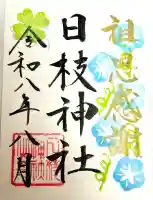 祖恩感謝
日枝神社
令和八年八月